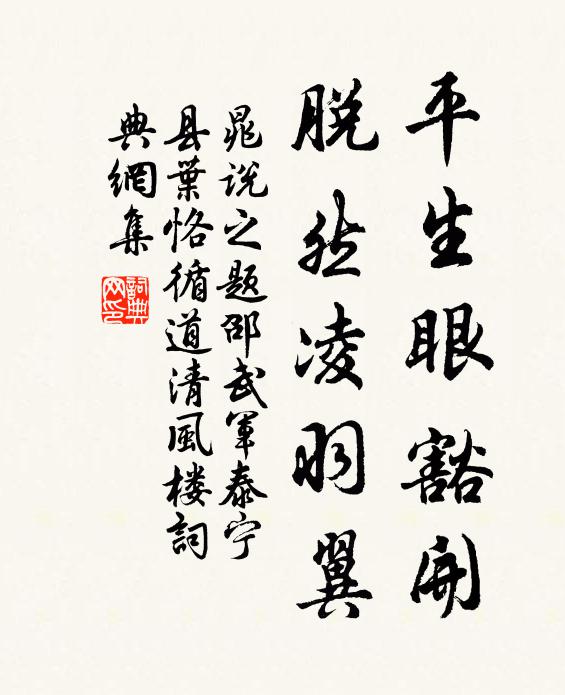 平生眼豁開
脱然凌羽翼
晁说之题邵武军泰宁
县葉恪循道清風楼詞
典網集
詞典
网印